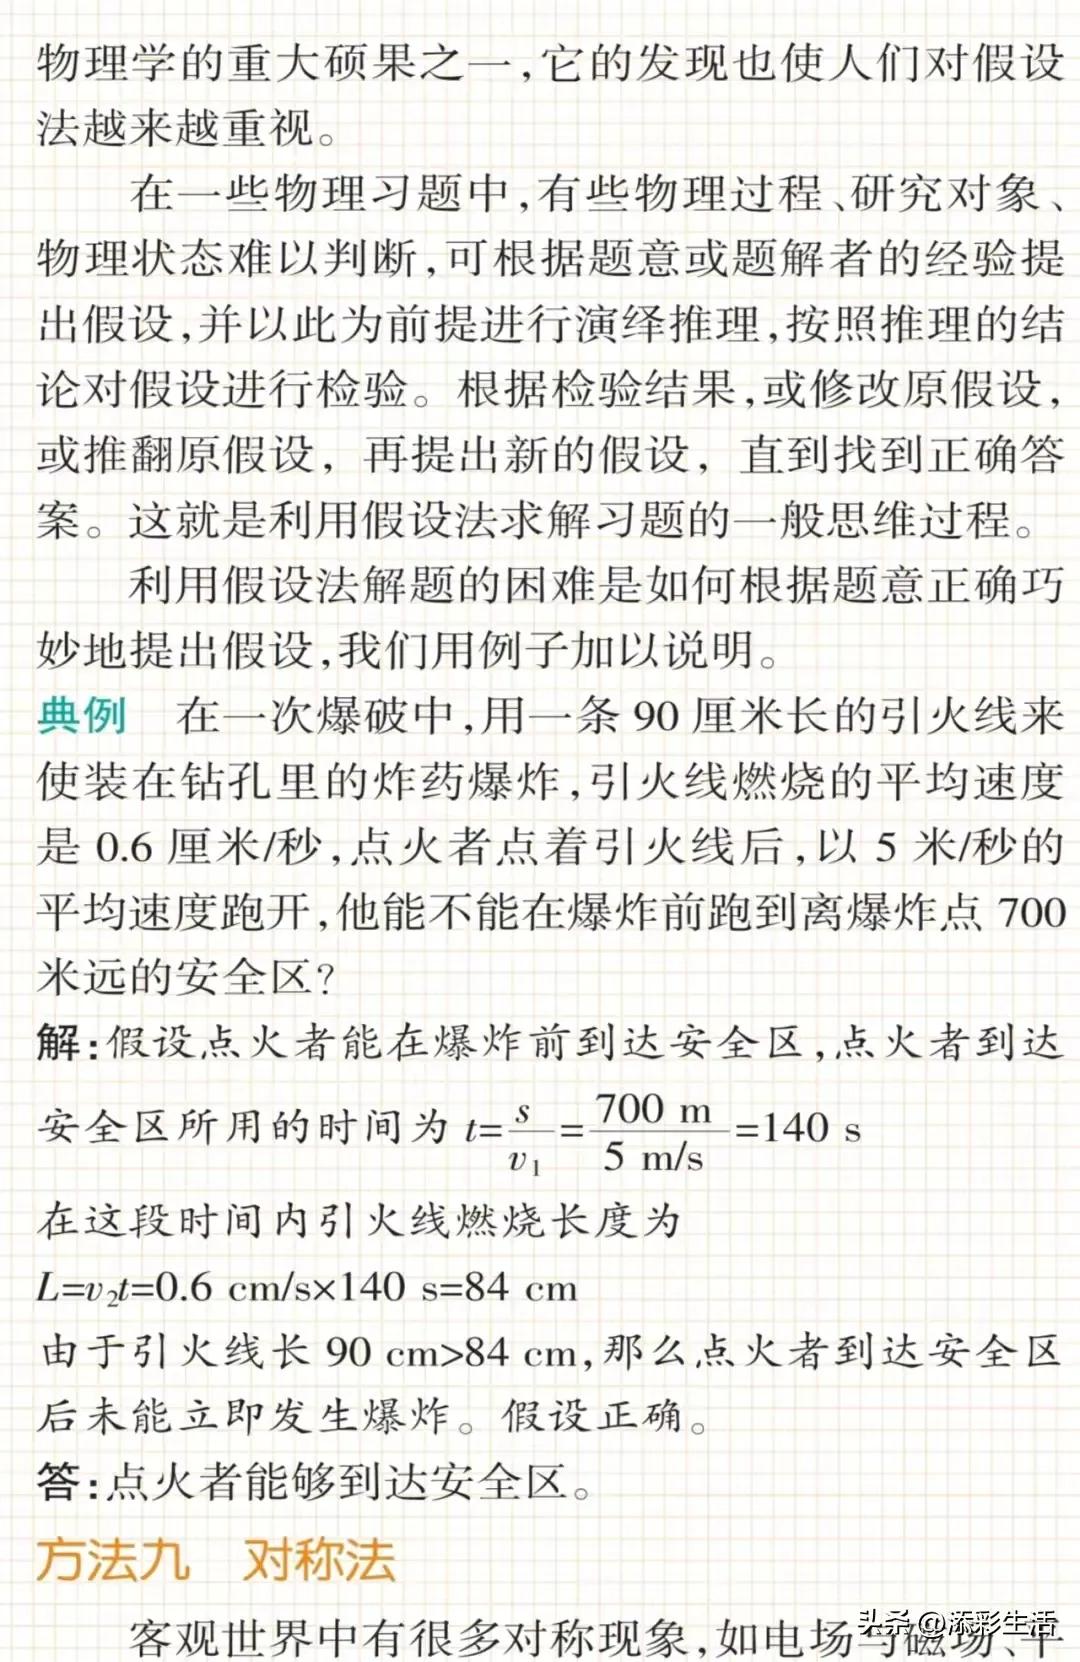 物理学的重大硕果之一,它的发现也使人们对假设
法越来越重视。
在一些物理习题中,有些物理过程、研究对象、
物理状态难以判断,可根据题意或题解者的经验提
出假设,并以此为前提进行演绎推理,按照推理的结
论对假设进行检验。根据检验结果,或修改原假设,
或推翻原假设，再提出新的假设，直到找到正确答
案。这就是利用假设法求解习题的一般思维过程。
利用假设法解题的困难是如何根据题意正确巧
妙地提出假设,我们用例子加以说明。
典例 在一次爆破中,用一条 90 厘米长的引火线来
使装在钻孔里的炸药爆炸,引火线燃烧的平均速度
是 0.6 厘米/秒,点火者点着引火线后,以 5 米/秒的
平均速度跑开,他能不能在爆炸前跑到离爆炸点 700
米远的安全区?
解:假设点火者能在爆炸前到达安全区,点火者到达
安全区所用的时间为 t=s/v₁=700 m/5 m/s=140 s
在这段时间内引火线燃烧长度为
L=v₂t=0.6 cm/s×140 s=84 cm
由于引火线长 90 cm>84 cm,那么点火者到达安全区
后未能立即发生爆炸。假设正确。
答:点火者能够到达安全区。
方法九 对称法
客观世界中有很多对称现象,如电场与磁场、平
头条 @添彩生活